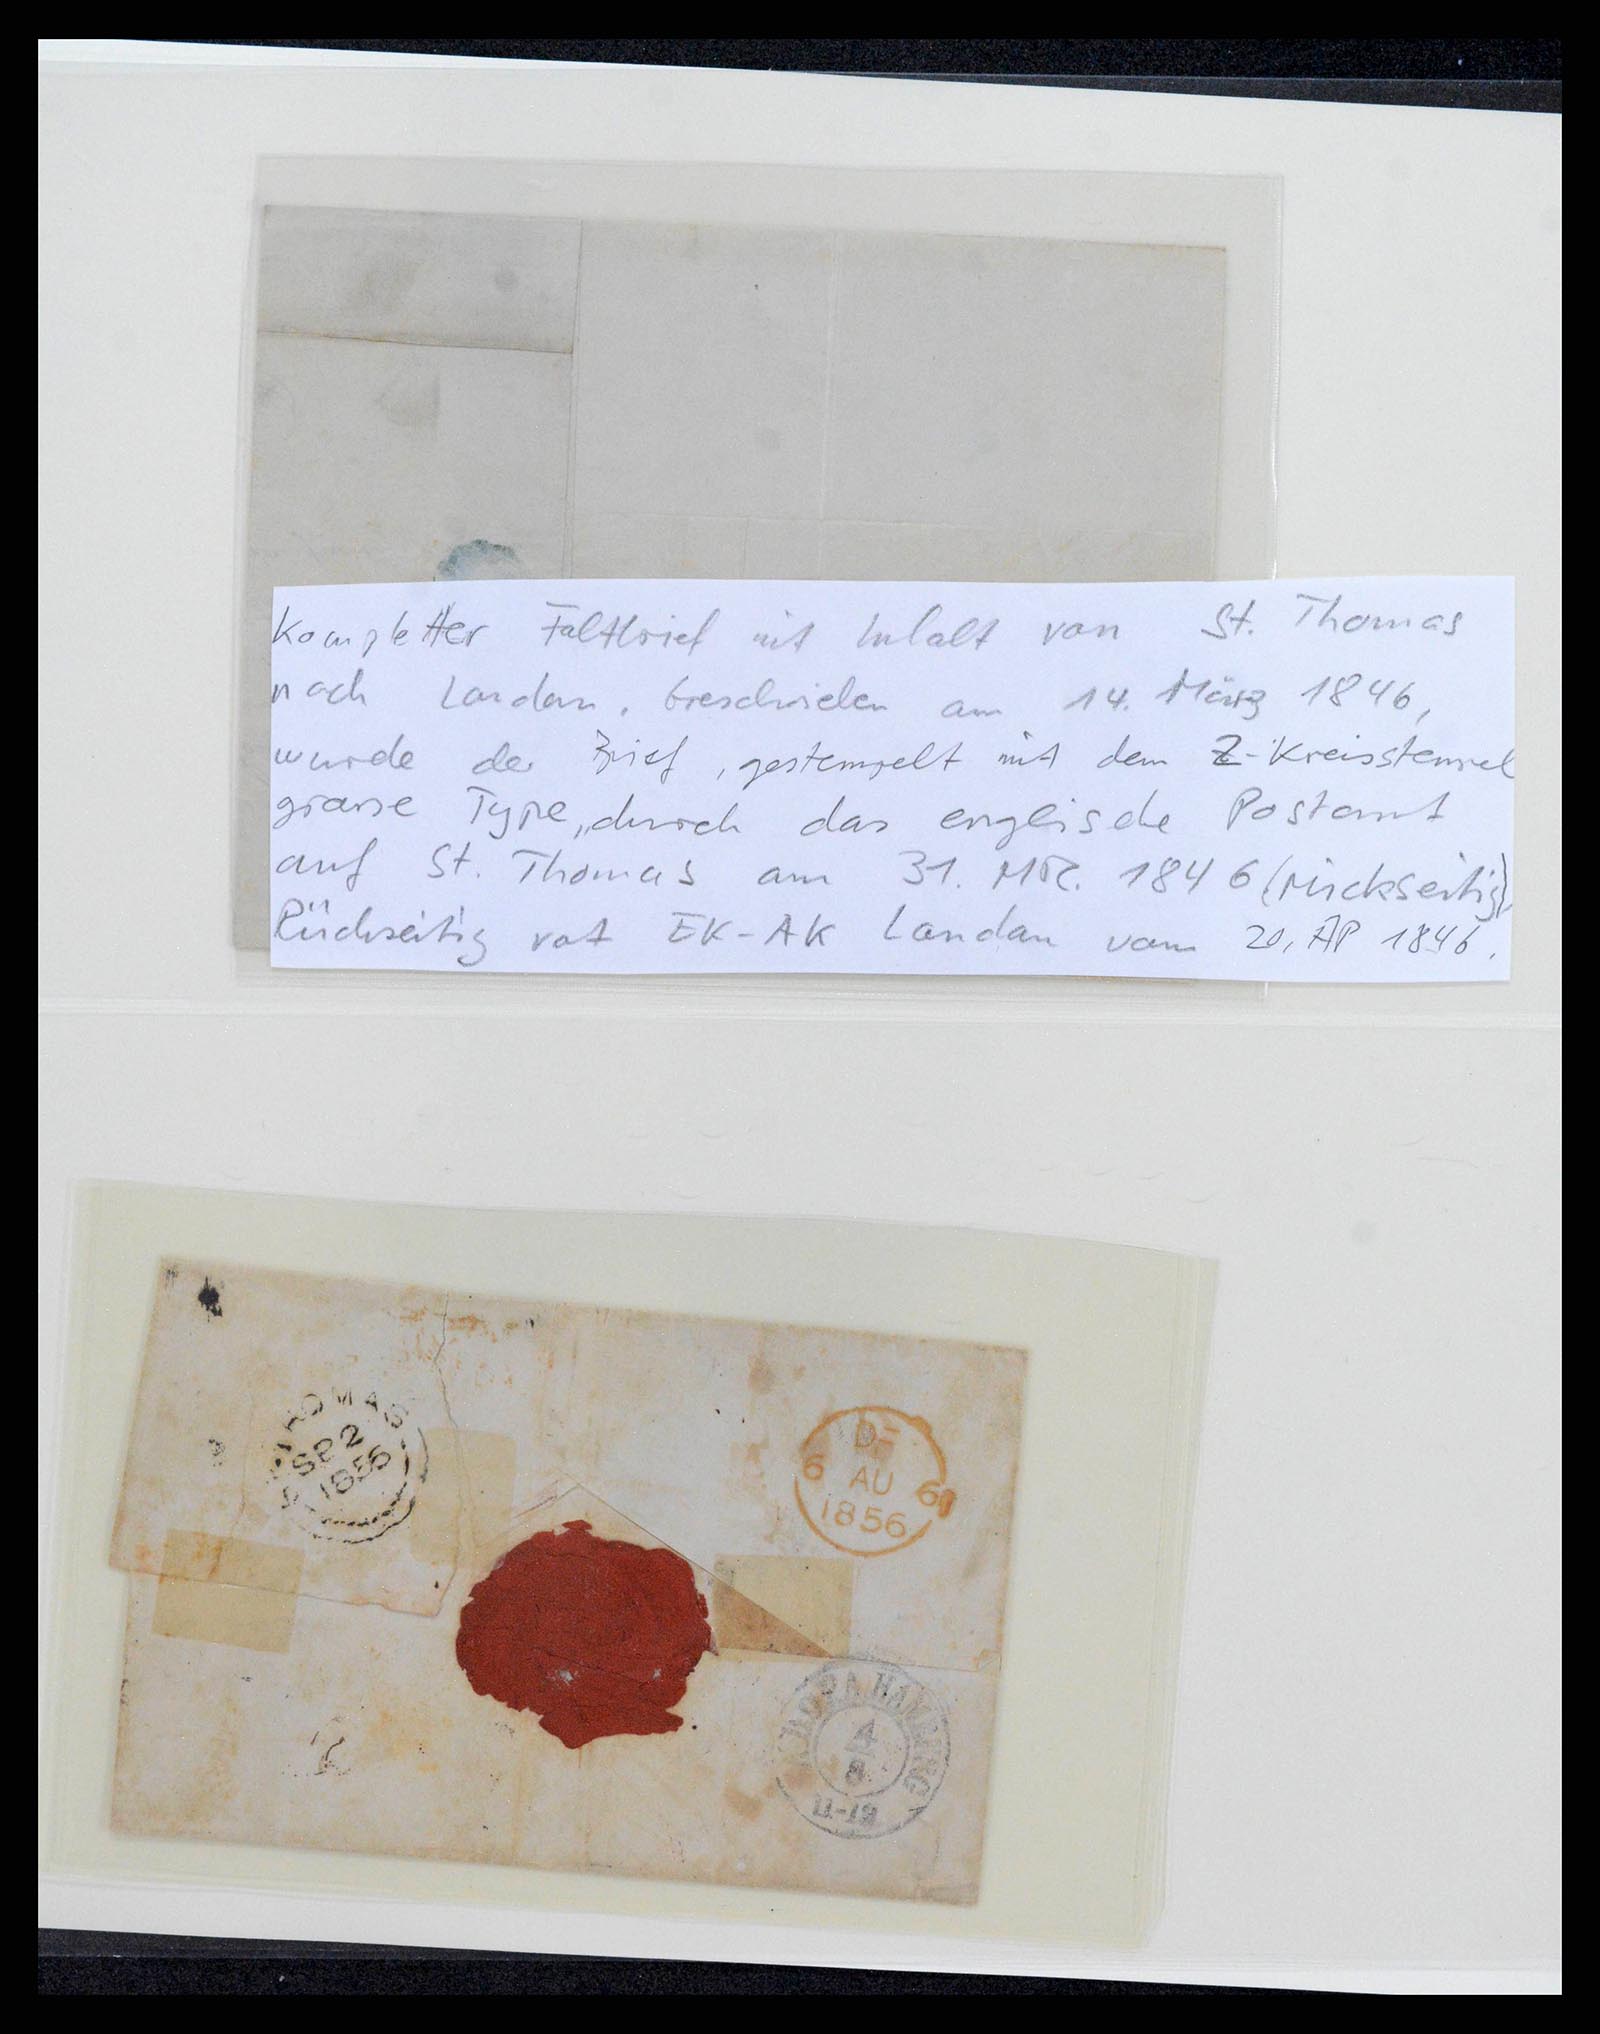 Kompletter Faltbrief mit Inhalt von St. Thomas
nach London. Geschrieben am 14. März 1846,
wurde der Brief, gestempelt mit dem Z-Kreisstempel
grosse Type, durch das englische Postamt
auf St. Thomas am 31. MR. 1846 (rückseitig),
Rückseitig rot EK-AK London vom 20. AP 1846.
THOMAS
SP 2
1856
6 AU 6
1856
HAMBURG
4
8
11-12